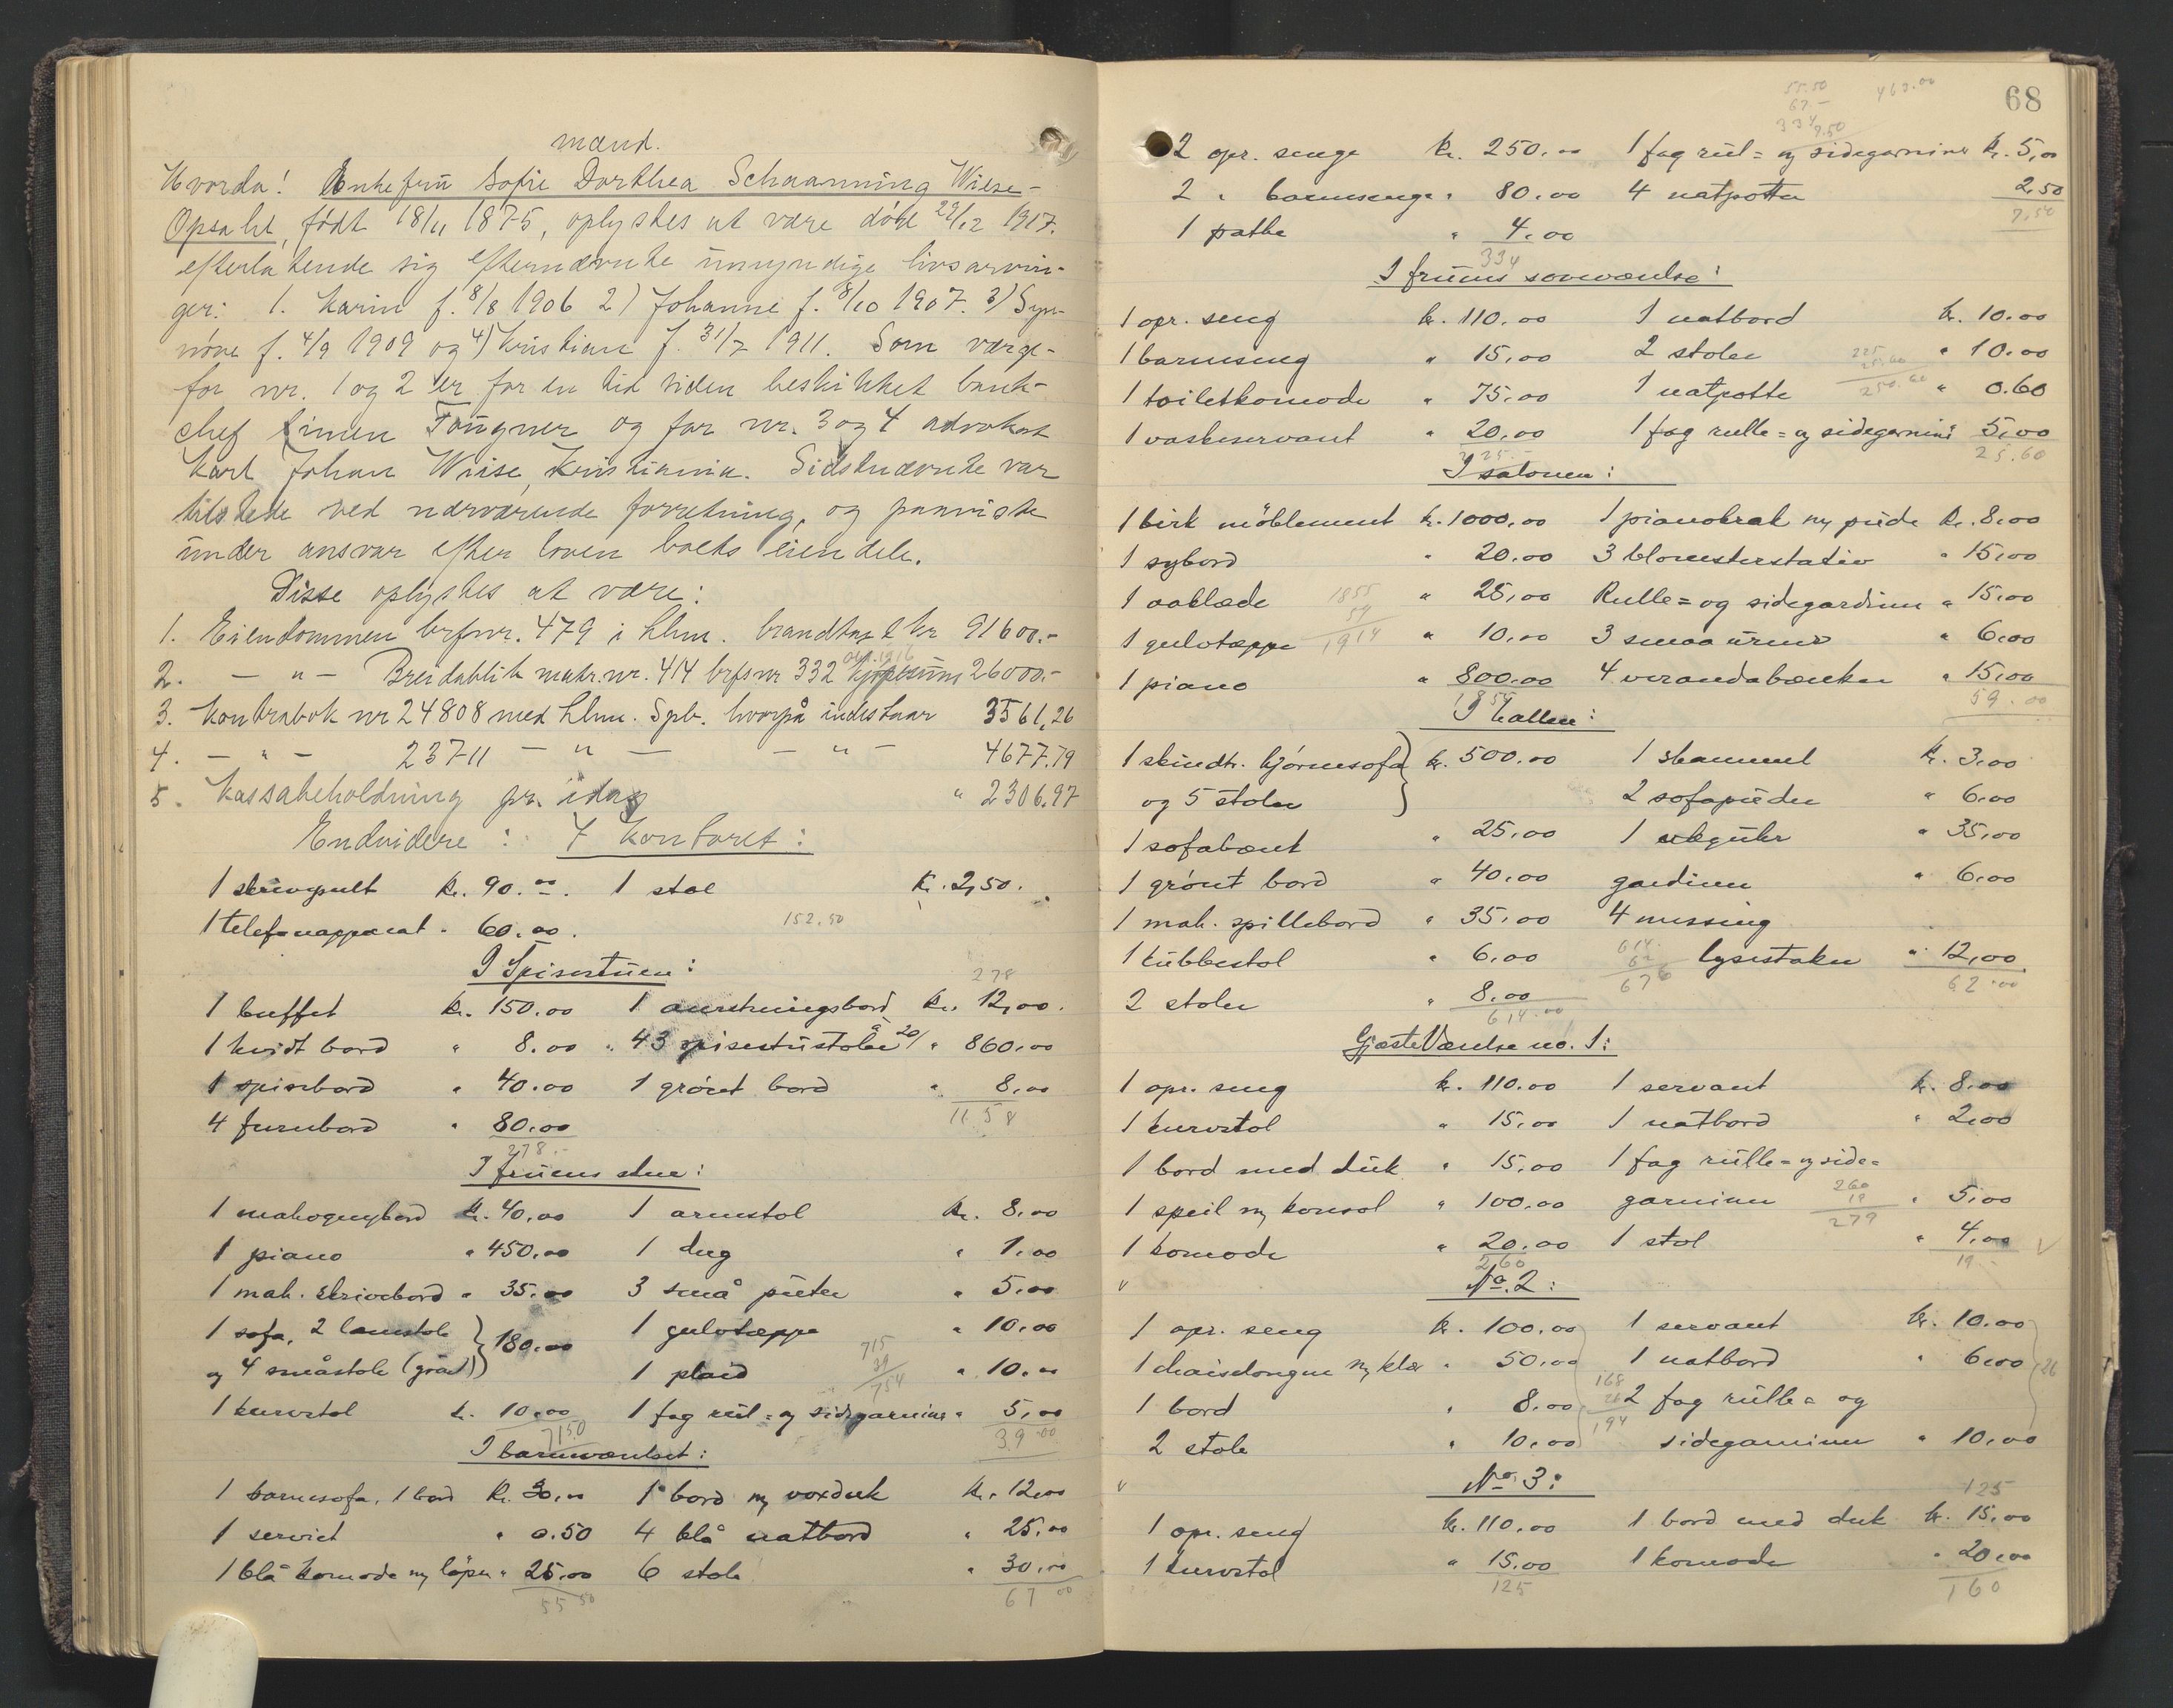 mand.
Hvorda! Enkefru Sofie Dorthea Schaanning Wiese-
Opsahl, født 18/11 1875, oplystes at være død 22/12 1917.
efterlatende sig efternævnte umyndige livsarvin-
ger: 1. Karin f. 8/8 1906 2) Johanne f. 8/10 1907. 3) Syn-
növe f. 4/9 1909 og 4) Kristian f. 31/7 1911. Som verge-
for nr. 1 og 2 er for en tid siden beskikket bank-
chef Simen Fougner og for nr. 3 og 4 advokat
Karl Johan Wiise, Kristiania. Sidstnævnte var
tilstede ved nærværende forretning, og paaviste
under ansvar efter loven boets eiendele.
Disse oplystes at være:
1. Eiendommen brfnr. 479 i Lhm. brandtax t kr 91600.-
2. — " — Breidablik matr.nr. 414 brfsnr 332 kjøpesum 26000.-
3. Kontrabok nr 24808 med Lhm. Spb. hvorpå indestaar 3561,26
4. — " — 23711 — " — — " — 4677.79
5. Kassabeholdning pr. idag " 2306.97
Endvidere: I kontoret:
1 skrivepult kr. 90.00. 1 stol kr. 2,50.
1 telefonapparat " 60.00. 152.50
I Spisestuen:
278
1 buffet kr. 150.00 1 anretningsbord kr. 12,00.
1 hvidt bord " 8.00 " 43 spisestustoler à 20/ " 860,00
1 spisebord " 40.00 1 grönt bord " 8,00
4 furubord " 80.00 1158
278.-
I fruens stue:
1 mahognybord kr. 40,00 1 armstol kr. 8,00
1 piano " 450,00 1 dug " 1,00
1 mah. skrivebord " 35.00 3 små puter " 5,00
1 sofa, 2 lænstole } 180.00 1 gulvtæppe " 10,00
og 4 småstole (grøn) 1 plaid 715 39 754 " 10.00
1 kurvstol kr. 10,00 1 fag rul= og sidegardiner " 5,00
715.0 39.00
I barneværelset:
1 barnesofa, 1 bord kr. 30,00 1 bord m/ voxduk kr. 12,00
1 servict " 0.50 4 blå natbord " 25,00
1 blå komode m/ löper " 25,00 6 stole " 30,00
55 50 67 00
68
55.50 463.00
67.-
334
7.50
2 opr. senge kr. 250.00 1 fag rul= og sidegardiner kr. 5,00
2 " barnesenge " 80.00 4 natpotter 2,50
1 " 4.00 7,50
334
I fruens soveværelse:
1 opr. seng kr. 110.00 1 natbord kr. 10.00
1 barneseng " 15,00 2 stoler " 10.00
1 toiletkomode " 75,00 1 natpotte 250.60 " 0.60
1 vaskeservant " 20,00 1 fag rulle= og sidegardiner 5,00
225.- 25.60
I salonen:
1 birk möblement kr. 1000,00 1 pianokrak m/ pude kr. 8,00
1 sybord " 20.00 3 blomsterstativ " 15,00
1 aaklæde 1855 " 25,00 Rulle= og sidegardiner " 15,00
1 gulvtæppe 59 1914 " 10,00 3 smaa urner " 6,00
1 piano " 800,00 4 verandabænker " 15,00
1855 59.00
I hallen:
1 skindtr. hjörnesofa } kr. 500.00 1 skammel kr. 3,00
og 5 stoler 2 sofapuder " 6,00
1 sofabænk " 25,00 1 " 35,00
1 grönt bord " 40.00 gardiner " 6,00
1 mah. spillebord " 35.00 4 messing
1 kubbestol " 6,00 614. 62 676 lysestaker " 12,00
2 stoler " 8.00 62.00
614.00
GjæsteVærelse no. 1:
1 opr. seng kr. 110.00 1 servant kr. 8.00
1 kurvstol " 15,00 1 natbord " 2,00
1 bord med duk " 15.00 1 fag rulle= og side=
1 speil m/ konsol " 100.00 gardiner 260 19 279 " 5,00
1 komode " 20.00 1 stol " 4,00
260 19 -
No. 2:
1 opr. seng kr. 100,00 1 servant kr. 10.00
1 chaiselongue m/ " 50,00 1 natbord " 6,00 26
1 bord " 8.00 168 26 194 2 fag rulle= og
2 stole " 10,00 sidegardiner " 10,00
No. 3:
125
1 opr. seng kr. 110.00 1 bord med duk kr. 15,00
1 kurvstol " 15,00 1 komode " 20,00
125 160